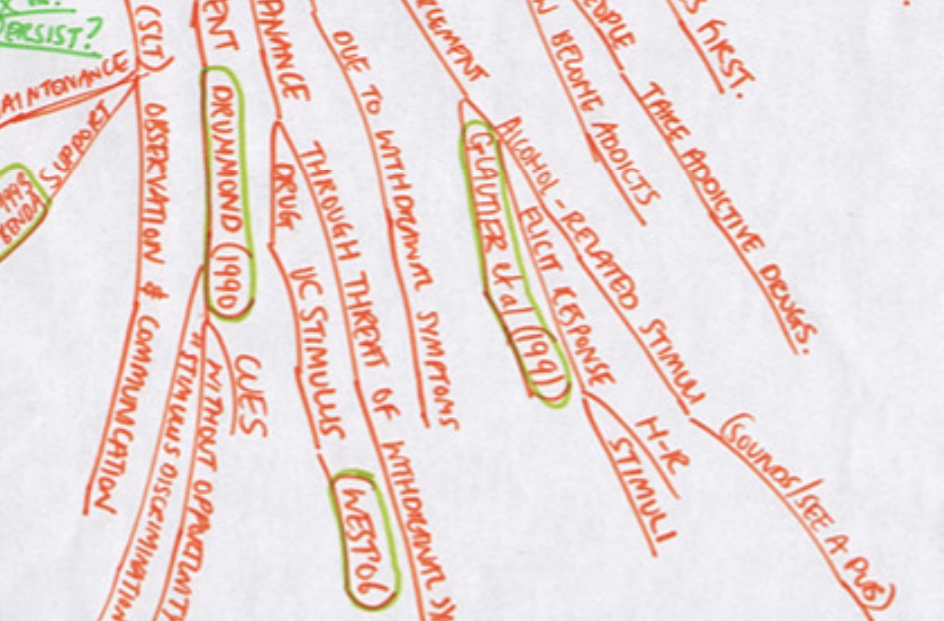 ERSIST?
(SLT)
SUPPORT
OBSERVATION & COMMUNICATION
DRUMMOND (1990)
CUES
WITHOUT OPPORTUNITY
"STIMULUS DISCRIMINATION
DRUG
UC STIMULUS
WEST '06
THROUGH THREAT OF WITHDRAWAL SY
DUE TO WITHDRAWAL SYMPTOMS
GLAUTIER et al (1991)
ELICIT RESPONSE
N-R
STIMULI
ALCOHOL-RELATED STIMULI
(SOUNDS/SEE A PUB)
N BELONG ADDICTS
EOPLE TAKE ADDICTIVE DRUGS.
S FIRST.